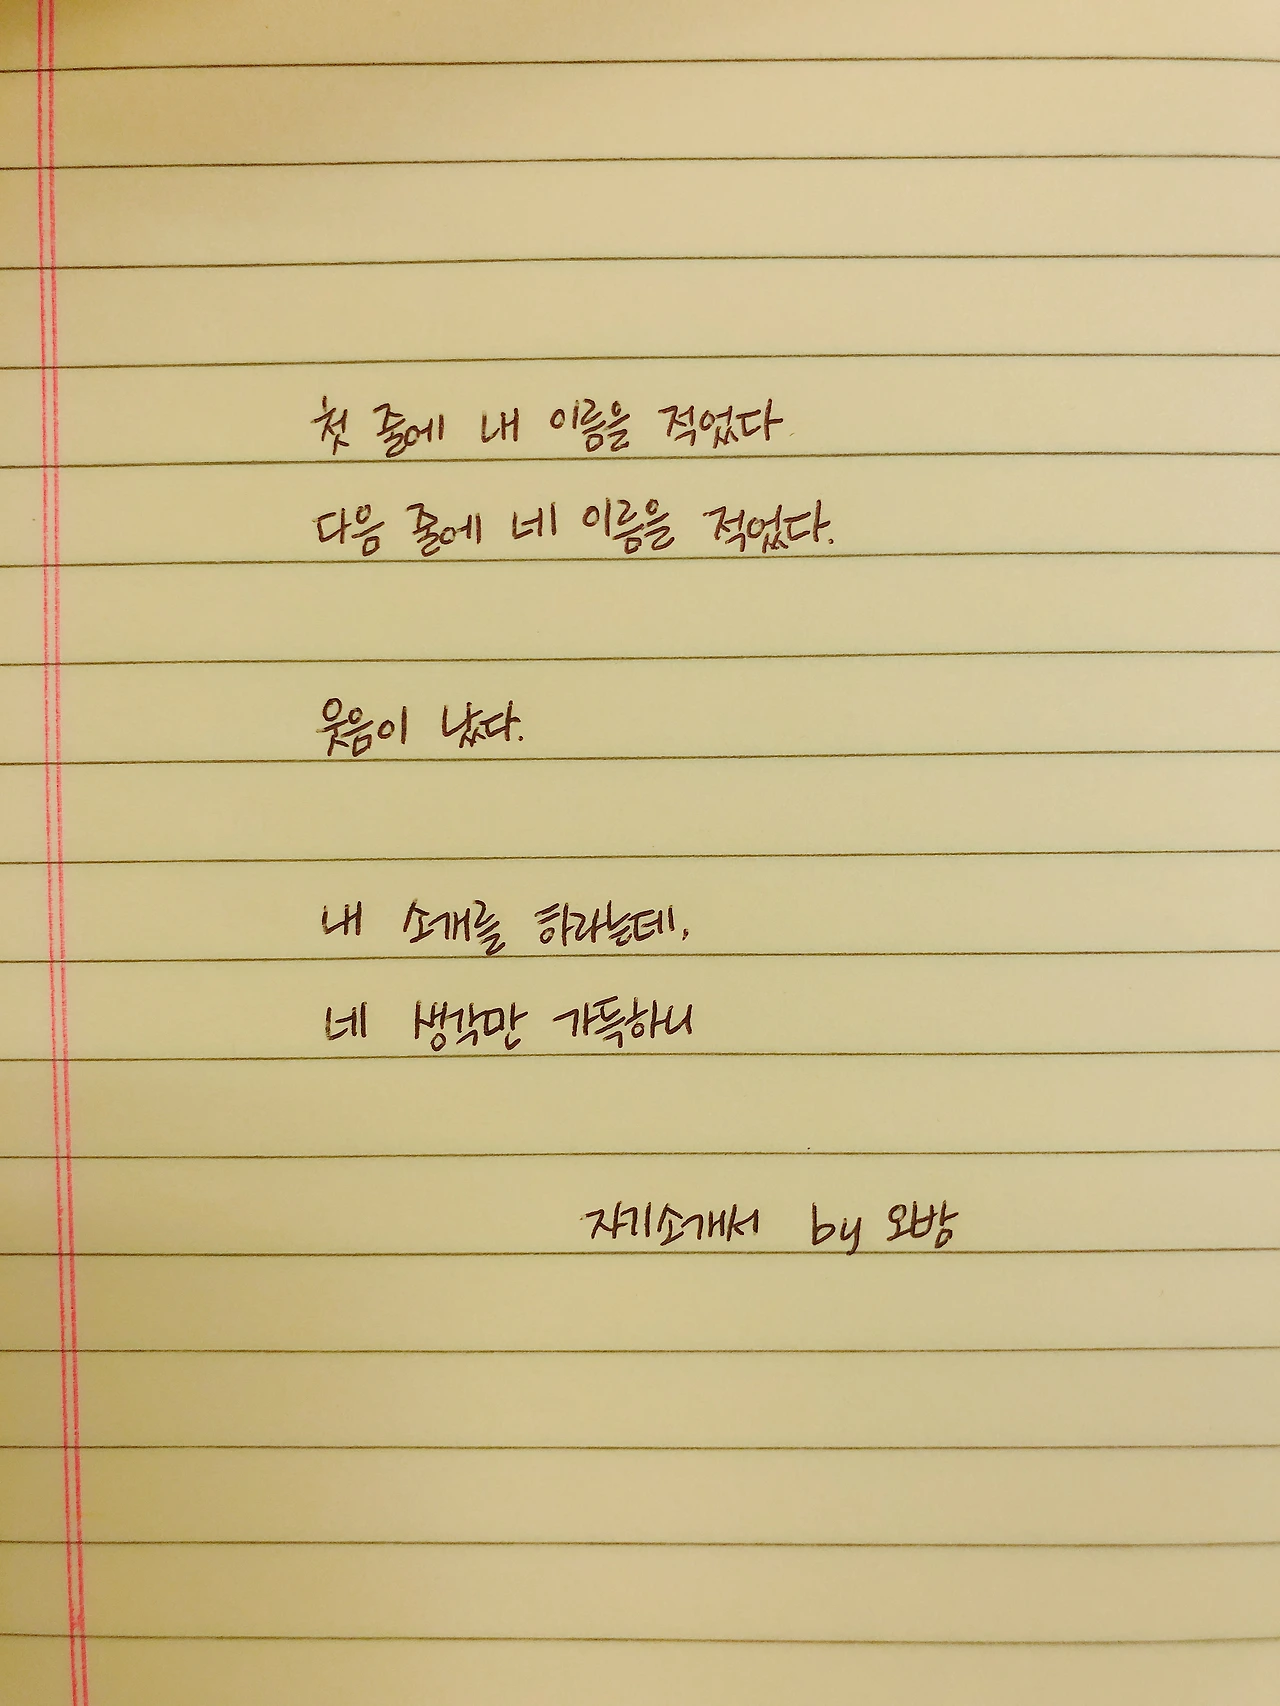 첫 줄에 내 이름을 적었다.
다음 줄에 네 이름을 적었다.
웃음이 났다.
내 소개를 하라는데,
네 생각만 가득하니
자기소개서 by 오방